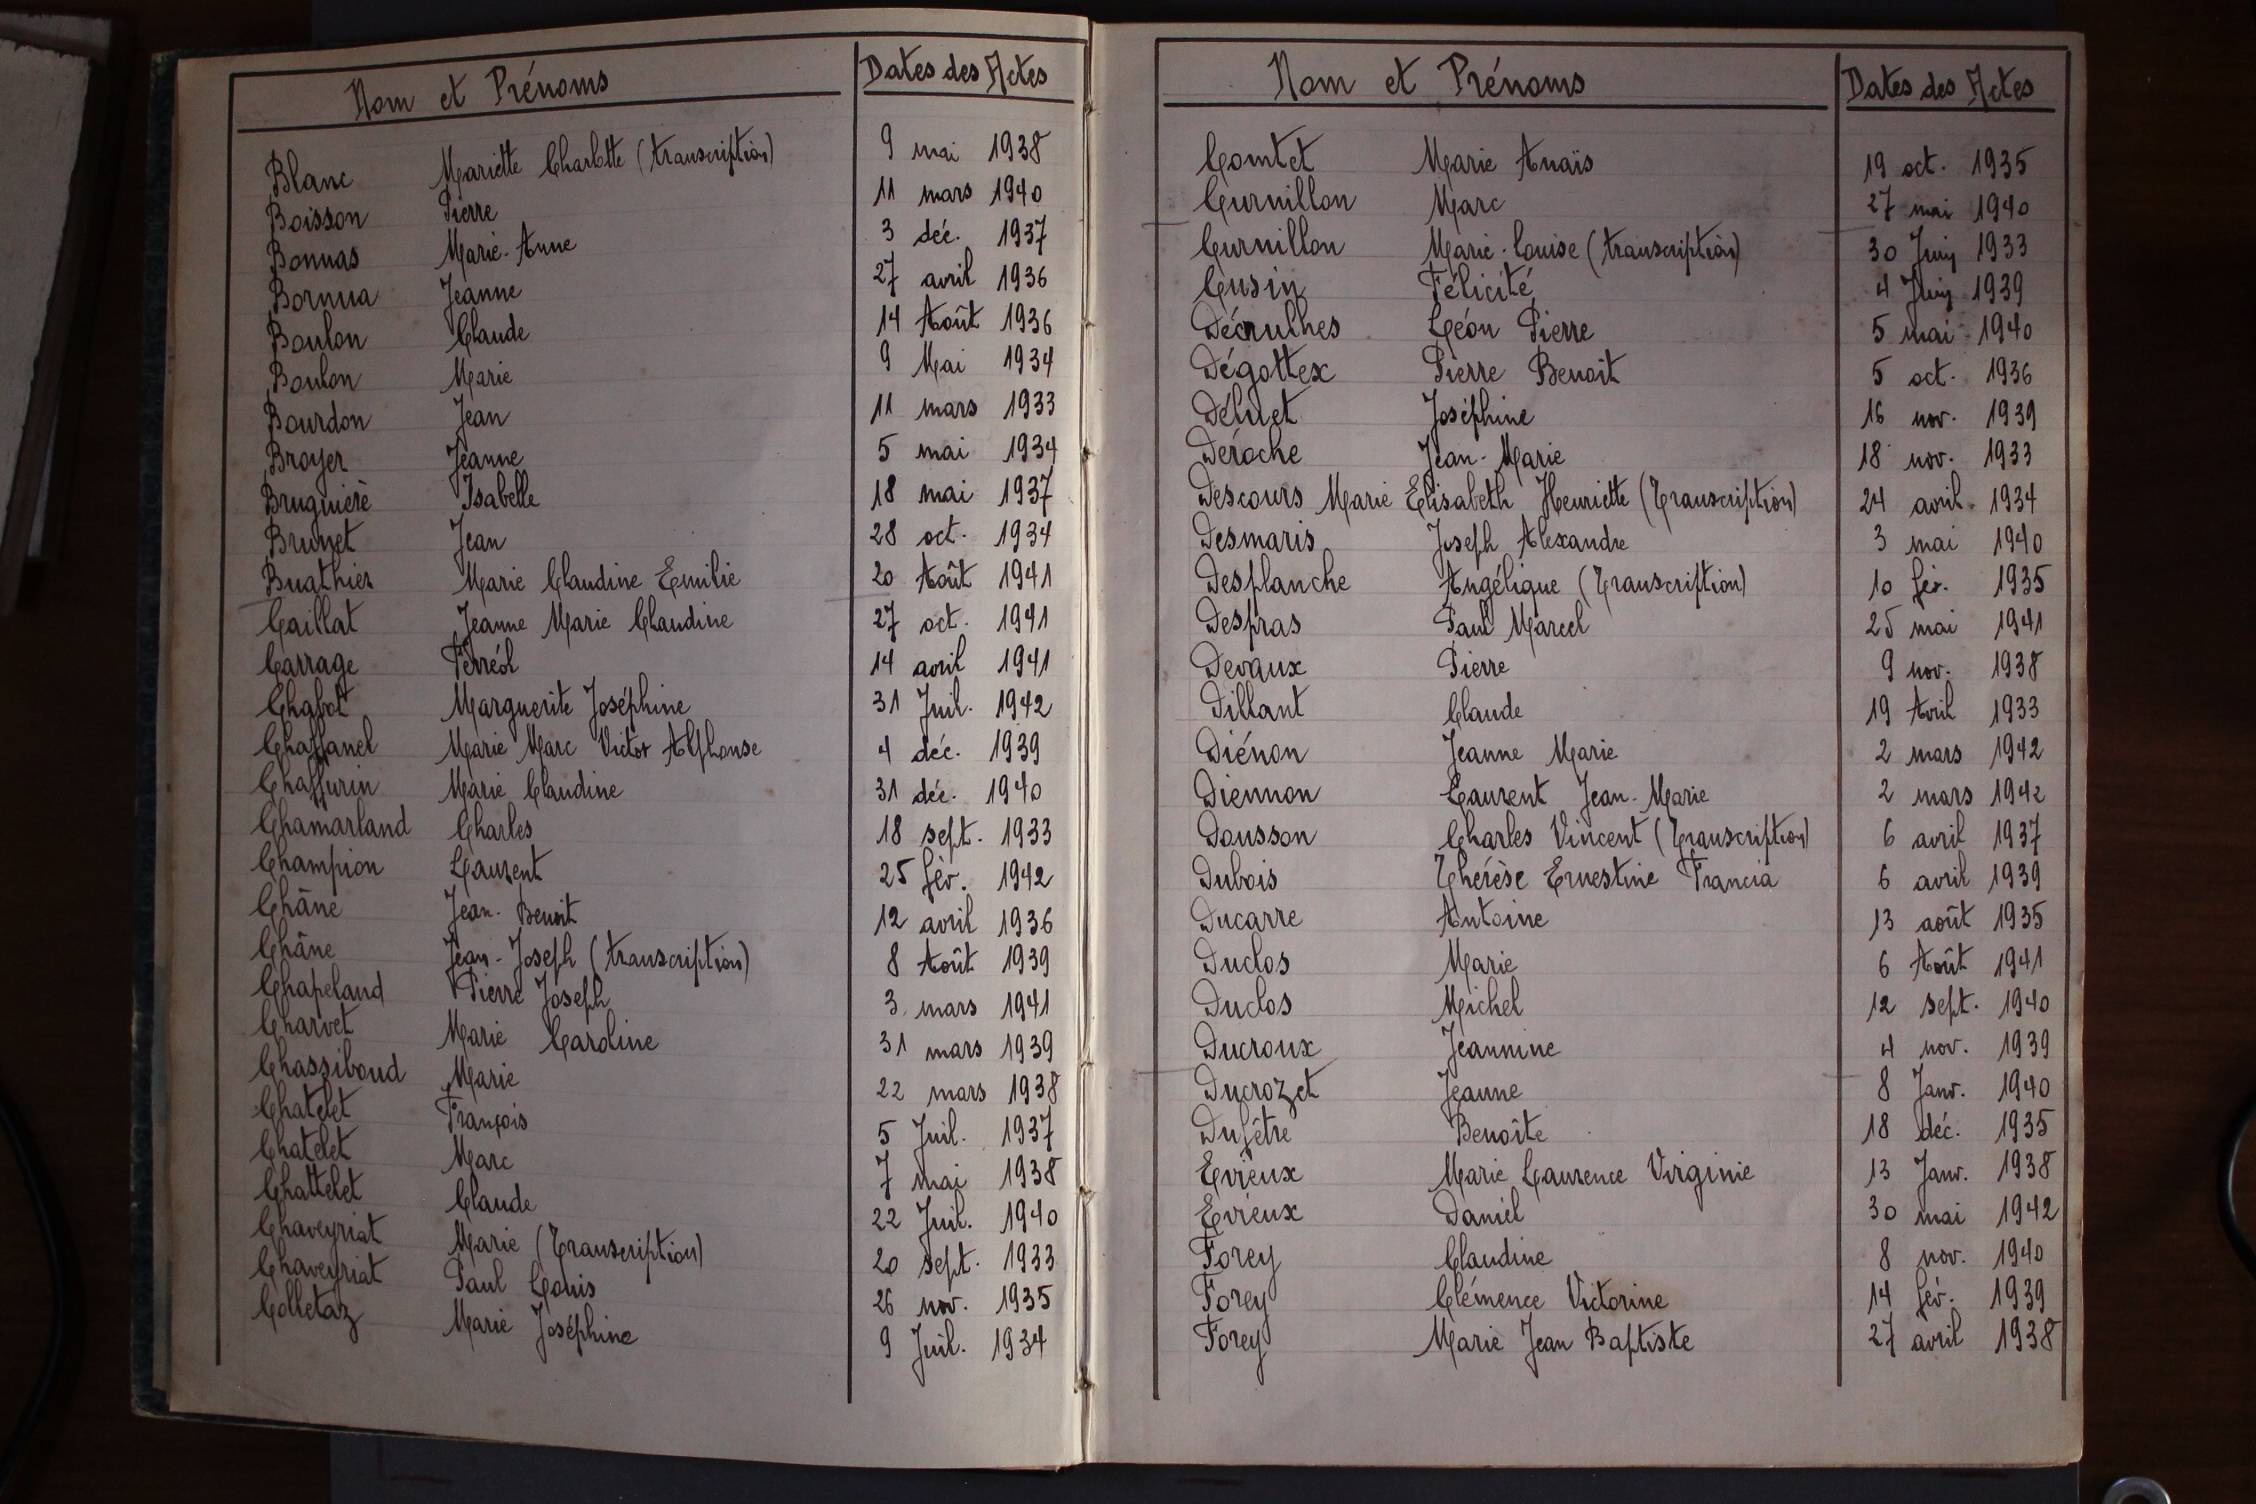 Nom et Prénoms Dates des Actes
Blanc Mariette Charlotte (transcription) 9 mai 1938
Boisson Pierre 11 mars 1940
Bonnas Marie-Anne 3 déc. 1937
Bornua Jeanne 27 avril 1936
Boulon Claude 14 Août 1936
Boulon Marie 9 Mai 1934
Bourdon Jean 11 mars 1933
Broyer Jeanne 5 mai 1934
Bruguière Isabelle 18 mai 1937
Brunet Jean 28 oct. 1934
Buathier Marie Claudine Emilie 20 Août 1941
Caillat Jeanne Marie Claudine 27 oct. 1941
Carrage Ferréol 14 avril 1941
Chabot Marguerite Joséphine 31 Juil. 1942
Chaffanel Marie Marc Victor Alphonse 4 déc. 1939
Chaffurin Marie Claudine 31 déc. 1940
Chamarland Charles 18 sept. 1933
Champion Laurent 25 fév. 1942
Châne Jean-Benoit 12 avril 1936
Châne Jean-Joseph (transcription) 8 Août 1939
Chapeland Pierre Joseph 3 mars 1941
Charvet Marie Caroline 31 mars 1939
Chassiboud Marie 22 mars 1938
Chatelet François 5 Juil. 1937
Chatelet Marc 7 mai 1938
Chattelet Claude 22 Juil. 1940
Chaveyriat Marie (Transcription) 20 sept. 1933
Chaveyriat Paul Louis 26 nov. 1935
Colletaz Marie Joséphine 9 Juil. 1934
Nom et Prénoms Dates des Actes
Comtet Marie Anaïs 19 oct. 1935
Curnillon Marc 27 mai 1940
Curnillon Marie-Louise (transcription) 30 Juin 1933
Cusin Félicité 4 Juin 1939
Décrulhes Léon Pierre 5 mai 1940
Dégottex Pierre Benoit 5 oct. 1936
Déluet Joséphine 16 nov. 1939
Déroche Jean-Marie 18 nov. 1933
Descours Marie Elisabeth Henriette (Transcription) 24 avril 1934
Desmaris Joseph Alexandre 3 mai 1940
Desplanche Angélique (Transcription) 10 fév. 1935
Despras Paul Marcel 25 mai 1941
Devaux Pierre 9 nov. 1938
Dillant Claude 19 Avril 1933
Diénon Jeanne Marie 2 mars 1942
Diennon Laurent Jean-Marie 2 mars 1942
Dousson Charles Vincent (Transcription) 6 avril 1937
Dubois Thérèse Ernestine Francia 6 avril 1939
Ducarre Antoine 13 août 1935
Duclos Marie 6 Août 1941
Duclos Michel 12 sept. 1940
Ducroux Jeannine 4 nov. 1939
Ducrozet Jeanne 8 Janv. 1940
Dufêtre Benoîte 18 déc. 1935
Evieux Marie Laurence Virginie 13 Janv. 1938
Evieux Daniel 30 mai 1942
Forey Claudine 8 nov. 1940
Forey Clémence Victorine 14 fév. 1939
Forey Marie Jean Baptiste 27 avril 1938